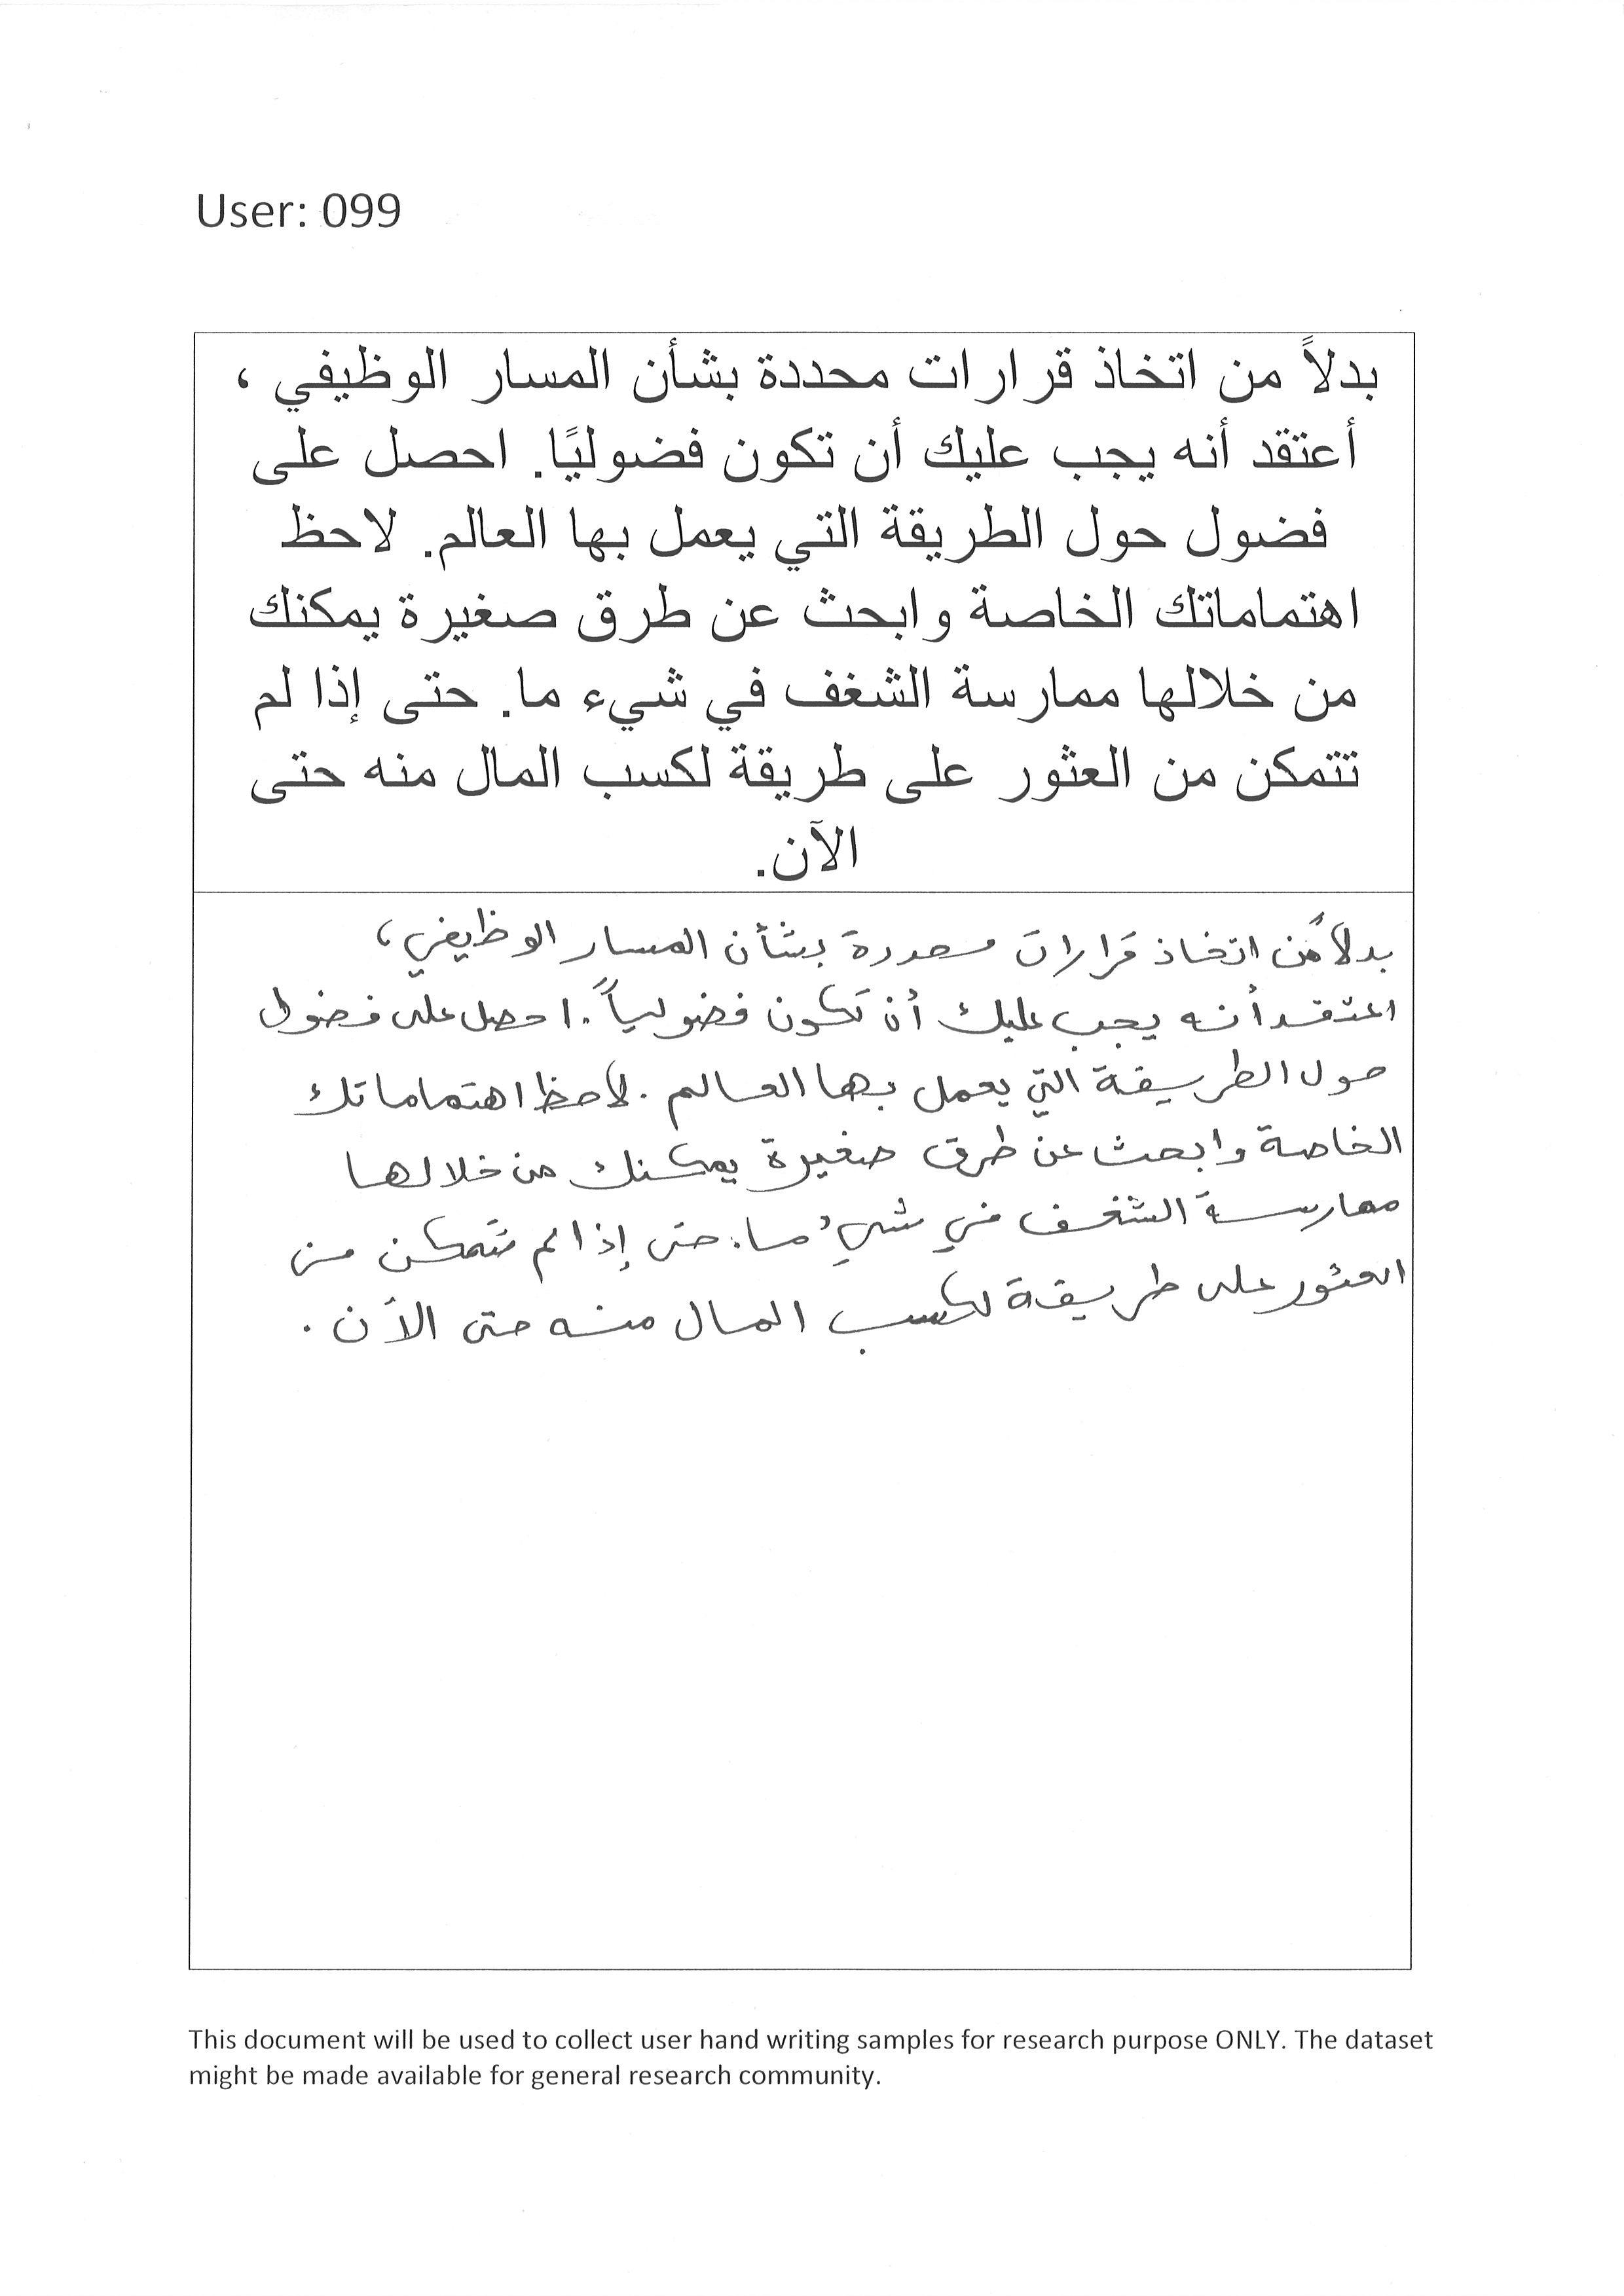 User: 099
بدلاً من اتخاذ قرارات محددة بشأن المسار الوظيفي ،
أعتقد أنه يجب عليك أن تكون فضوليًا. احصل على
فضول حول الطريقة التي يعمل بها العالم. لاحظ
اهتماماتك الخاصة وابحث عن طرق صغيرة يمكنك
من خلالها ممارسة الشغف في شيء ما. حتى إذا لم
تتمكن من العثور على طريقة لكسب المال منه حتى
الآن.
بدلاً من اتخاذ قرارات محددة بشأن المسار الوظيفي،
اعتقد أنه يجب عليك أن تكون فضولياً. احصل على فضول
حول الطريقة التي يعمل بها العالم. لاحظ اهتماماتك
الخاصة وابحث عن طرق صغيرة يمكنك من خلالها
ممارسة الشغف في شيء ما. حتى إذا لم تتمكن من
العثور على طريقة لكسب المال منه حتى الآن.
This document will be used to collect user hand writing samples for research purpose ONLY. The dataset
might be made available for general research community.